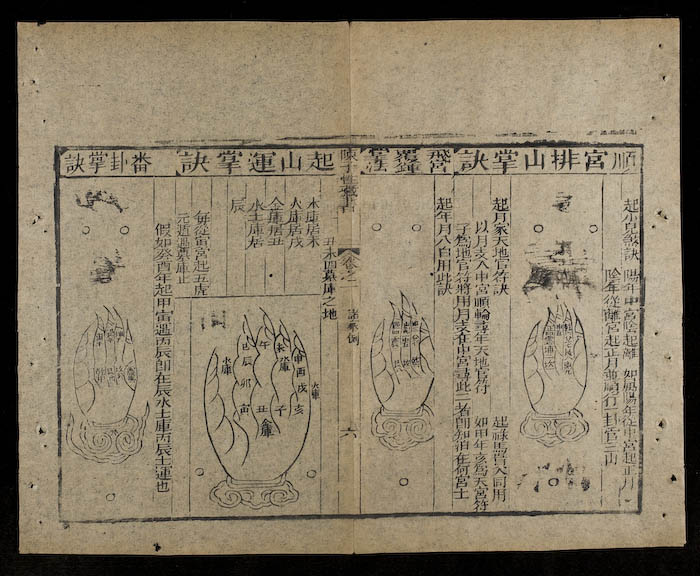 順宮排山掌訣
起小兒煞訣 陽年中宮陰起離 如遇陽年從中宮起正月
陰年從離宮起正月並順行一卦管三山
起月家天地官符訣 起祿馬貴人同用
以月支入中宮順輪尋年天地官符 如甲年亥為天官符
子為地官符將用月支在中宮尋此二者即知泊在何宮土
飛宮覆鐘掌法
起年月八白用此訣
陳子性藏書
卷之一 諸掌例
六
起山運掌訣
丑未四墓庫之地
木庫居未
火庫居戌
金庫居丑
水土庫居
辰
巳 午 未 申
木庫
辰 酉
水庫
卯 戌
火庫
寅 丑 子 亥
金庫
番卦掌訣
每從寅宮起五虎
元遁遇墓庫止
假如癸酉年起甲寅遇丙辰即在辰水土庫丙辰土運也